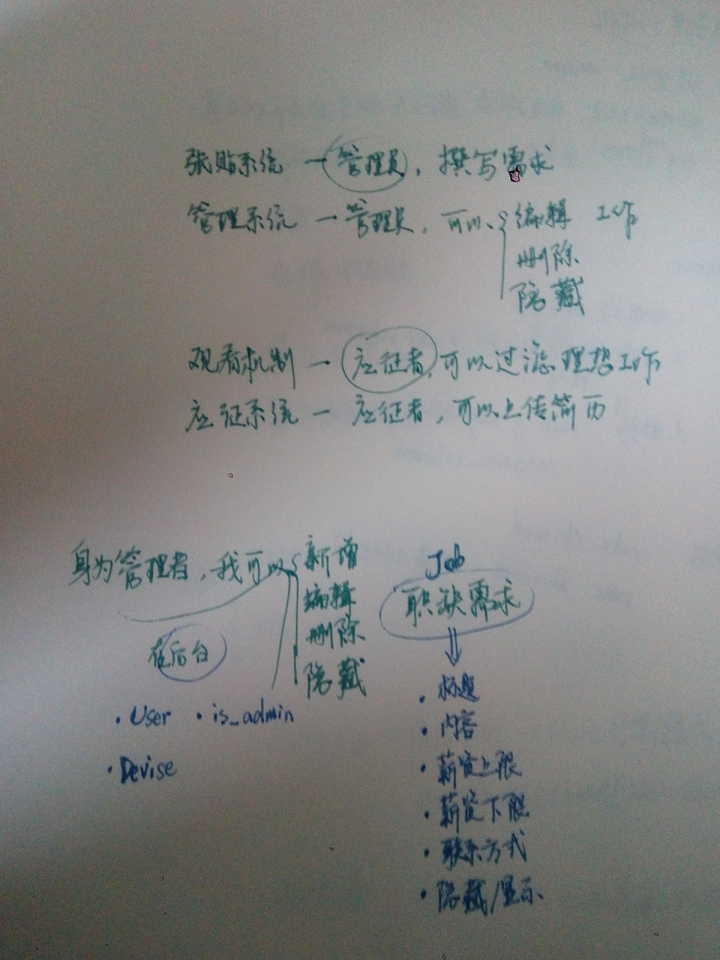 张贴系统 — 管理员，撰写需求
管理系统 — 管理员，可以 { 编辑 工作
删除
隐藏
观看机制 — 应征者，可以过滤理想工作
应征系统 — 应征者，可以上传简历
身为管理者，我可以 { 新增
编辑
删除
隐藏
Job
职缺需求
在后台
· User · is_admin
· Devise
· 标题
· 内容
· 薪资上限
· 薪资下限
· 联系方式
· 隐藏/显示